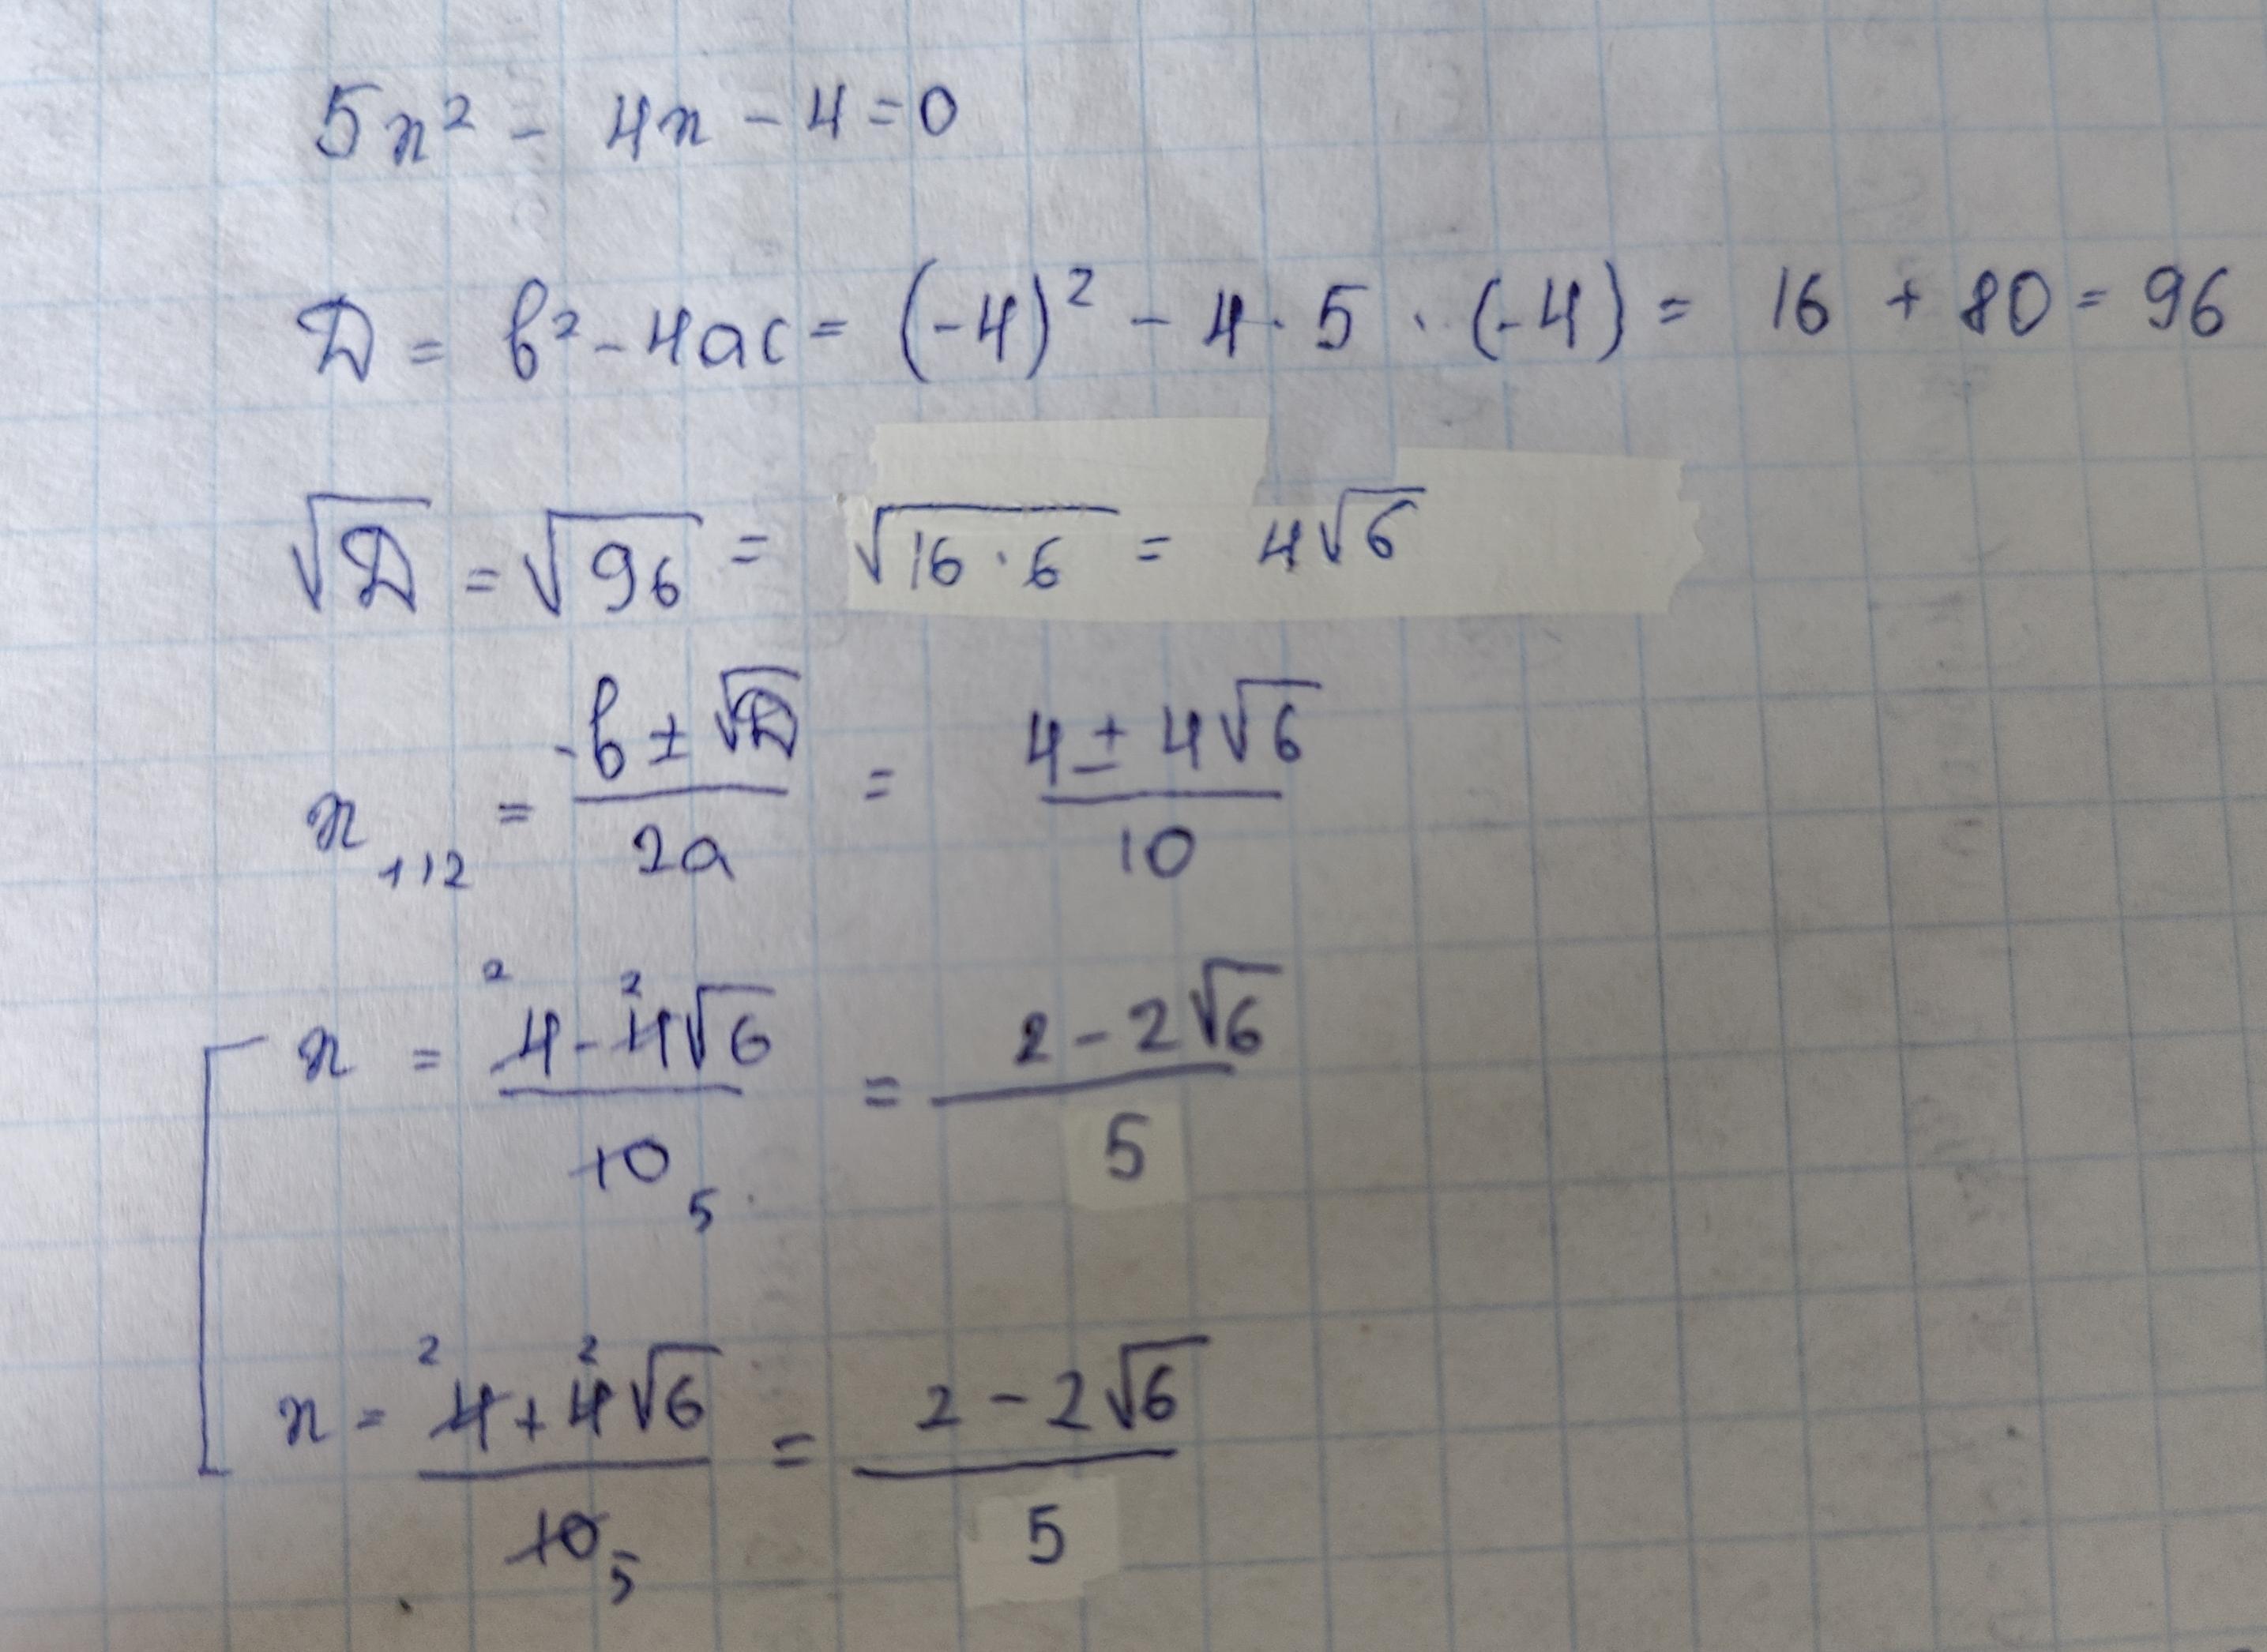 5x² - 4x - 4 = 0
D = b² - 4ac = (-4)² - 4 · 5 · (-4) = 16 + 80 = 96
√D = √96 = √16 · 6 = 4√6
x₁,₂ = (-b ± √D)/2a = (4 ± 4√6)/10
x = (4 - 4√6)/10 = (2 - 2√6)/5
x = (4 + 4√6)/10 = (2 - 2√6)/5